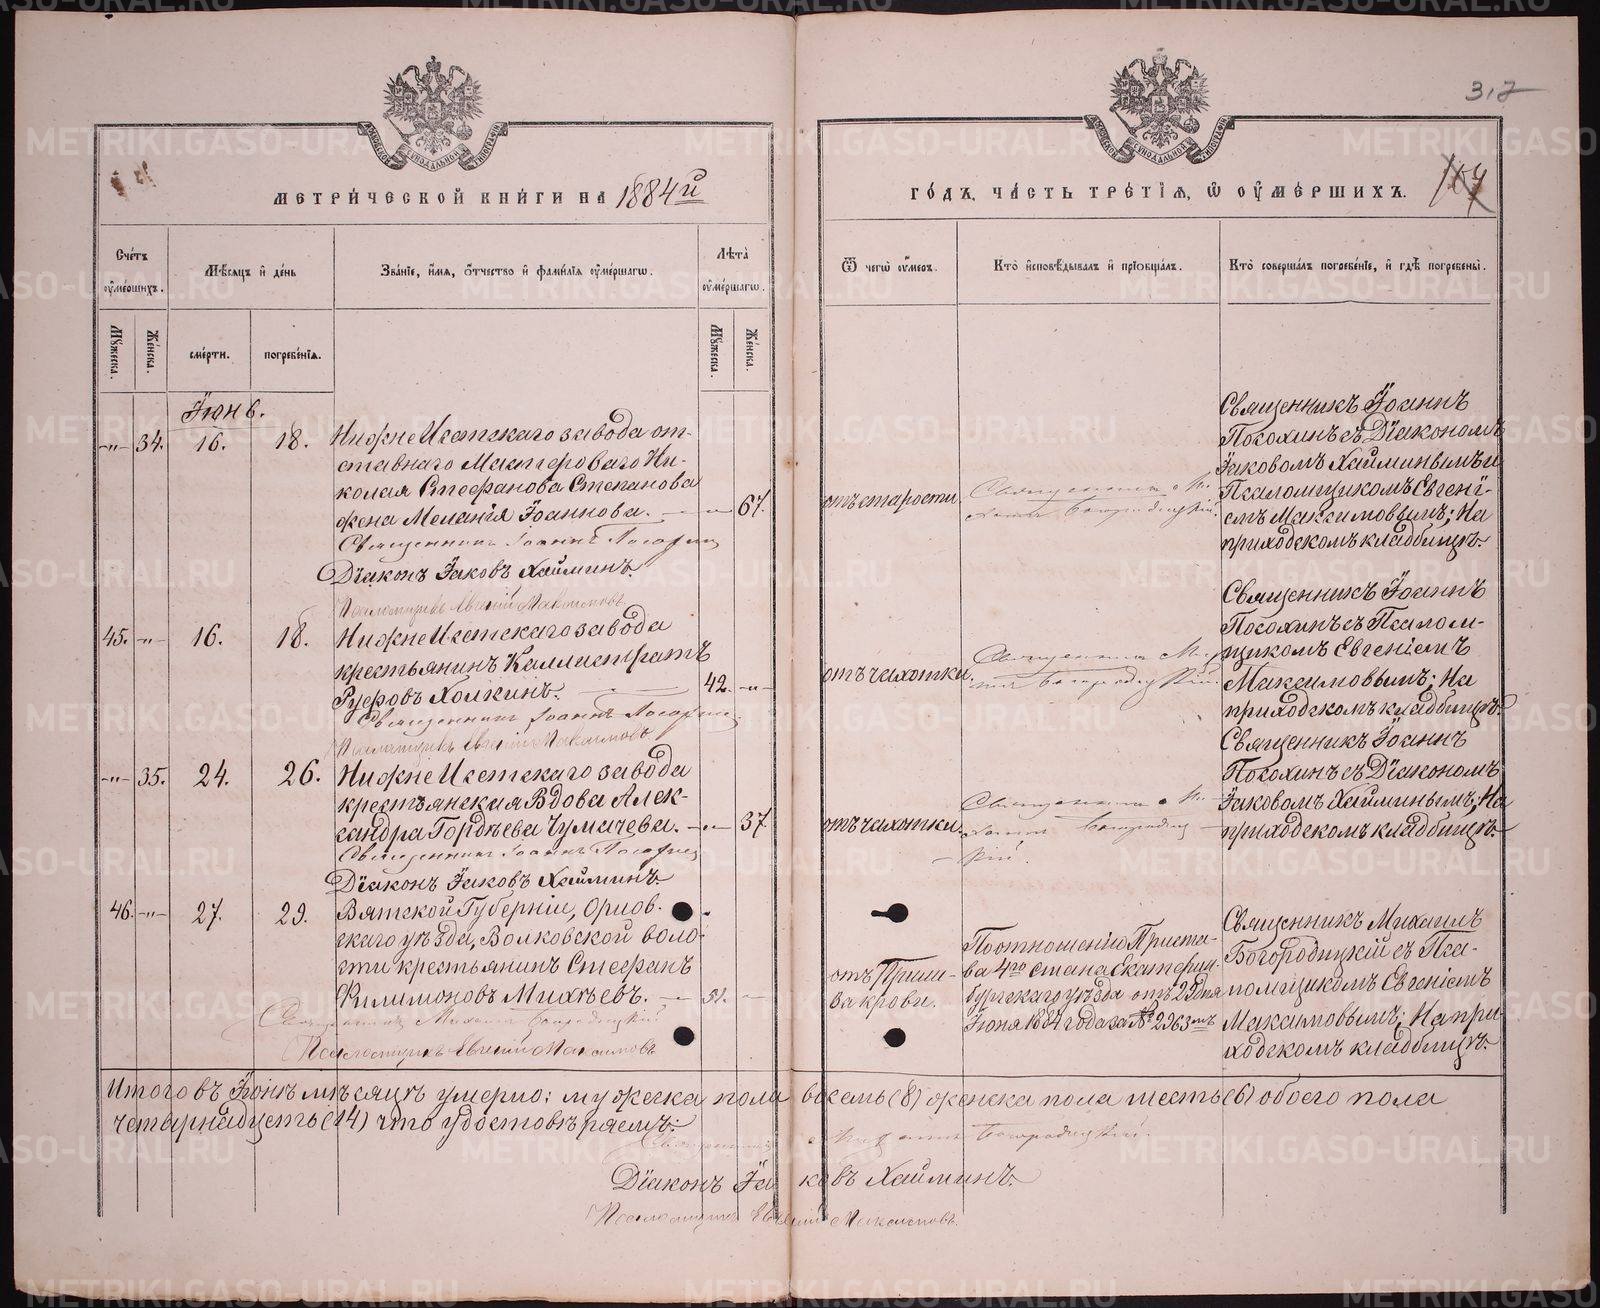 317
МЕТРИ́ЧЕСКОЙ КНИ́ГИ НА 1884й
ГО́ДЪ, ЧА́СТЬ ТРЕ́ТІЯ, Ѡ ОУМЕ́РШИХЪ.
Сче́тъ оумершихъ.
Мѣсяцъ и день
Званіе, имя, отчество и фамилія оумершаго.
Лѣта оумершаго.
Ѿ чего оумеръ.
Кто исповѣдывалъ и пріобщалъ.
Кто совершалъ погребеніе, и гдѣ погребены.
Мужеска.
Женска.
смерти.
погребенія.
Мужеска.
Женска.
Іюнь.
-"- 34. 16. 18.
Нижне Исетскаго завода от-
ставнаго Мастероваго Ни-
колая Стефанова Степанова
жена Меланія Іоаннова. -"- 67.
Священникъ Іоаннъ
Діаконъ Іаковъ Хайминъ.
Псаломщикъ Евгеній Максимовъ
отъ старости.
Священникъ Ми-
хаилъ Богородицкій.
Священникъ Іоаннъ
Посохинъ съ Діакономъ
Іаковомъ Хайминымъ и
Псаломщикомъ Евгені-
емъ Максимовымъ; На
приходскомъ кладбищѣ.
45. -"- 16. 18.
Нижне Исетскаго завода
крестьянинъ Каллистратъ
Руфовъ Холкинъ. 42. -"-
Священникъ Іоаннъ
Псаломщикъ Евгеній Максимовъ
отъ чахотки.
Священникъ Миха-
илъ Богородицкій.
Священникъ Іоаннъ
Посохинъ съ Псалом-
щикомъ Евгеніемъ
Максимовымъ; На
приходскомъ кладбищѣ.
-"- 35. 24. 26.
Нижне Исетскаго завода
крестьянская Вдова Алек-
сандра Гордѣева Чумачева. -"- 37.
Священникъ Іоаннъ
Діаконъ Іаковъ Хайминъ.
отъ чахотки.
Священникъ Ми-
хаилъ Богородиц-
кій.
Священникъ Іоаннъ
Посохинъ съ Діакономъ
Іаковомъ Хайминымъ; На
приходскомъ кладбищѣ.
46. -"- 27. 29.
Вятской Губерніи, Орлов-
скаго уѣзда, Волковской воло-
сти крестьянинъ Стефанъ
Филимоновъ Михѣевъ. 51. -
Священникъ Михаилъ Богородицкій
Псаломщикъ Евгеній Максимовъ
отъ Прили-
ва крови.
По отношенію Приста-
ва 4го стана Екатерин-
бургскаго уѣзда отъ 29 дня
Іюня 1884 года за № 2963мъ
Священникъ Михаилъ
Богородицкій съ Пса-
ломщикомъ Евгеніемъ
Максимовымъ; На при-
ходскомъ кладбищѣ.
Итого въ Іюнѣ мѣсяцѣ умерло: мужеска пола восемь (8) женска пола шесть (6) обоего пола
четырнадцеть (14) что удостовѣряемъ:
Священникъ Михаилъ Богородицкій.
Діаконъ Іаковъ Хайминъ.
Псаломщикъ Евгеній Максимовъ.
METRIKI.GASO-URAL.RU